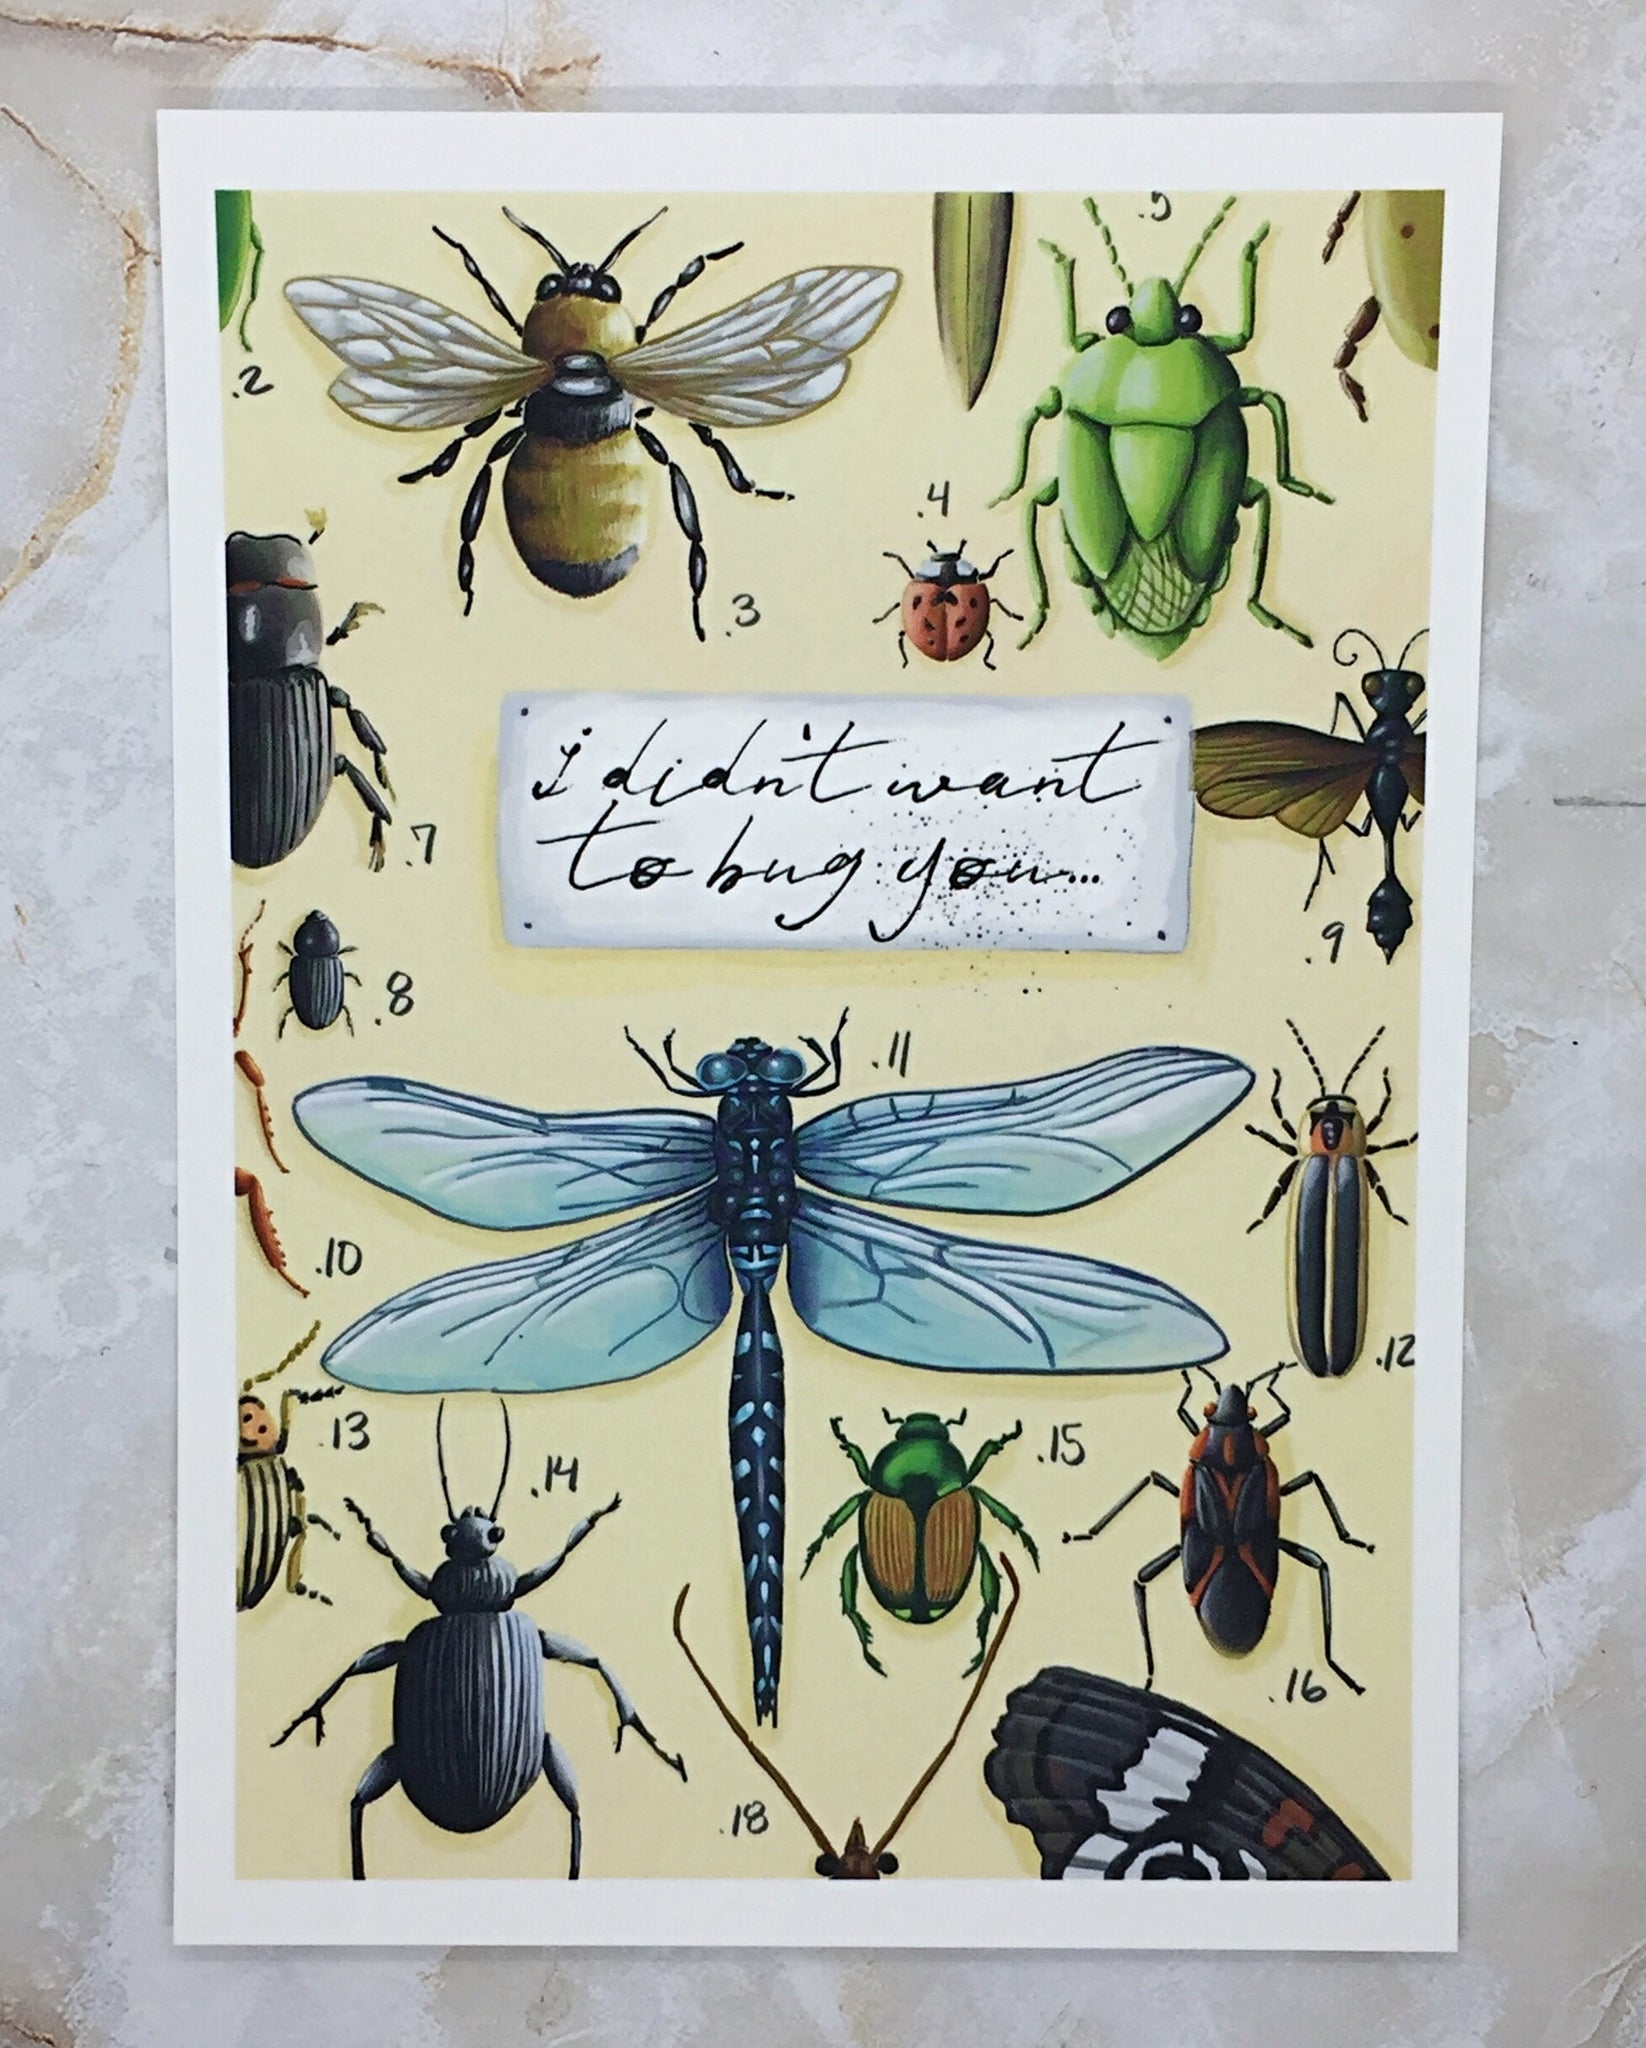 .5
.2
.4
.3
i didn't want
to bug you...
.7
.9
.8
.11
.10
.12
.13
.15
.14
.16
.18